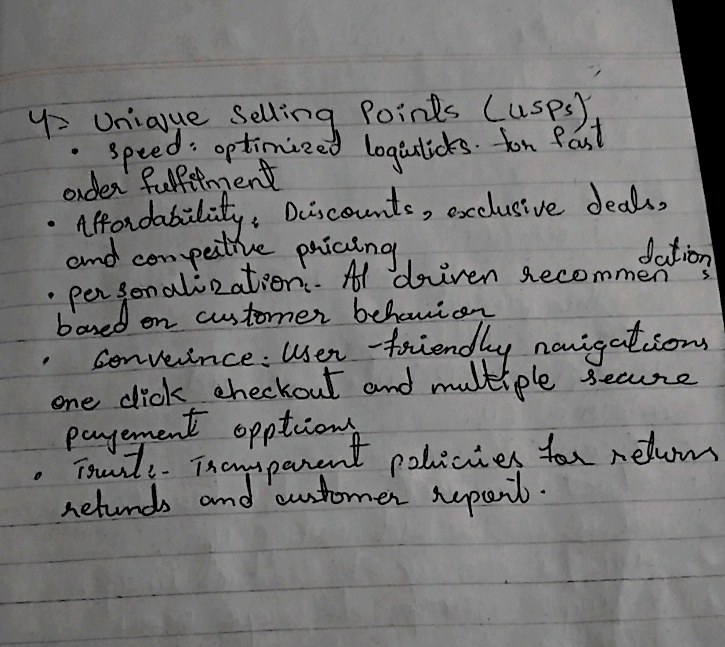 4> Unique Selling Points (USPs)
• Speed: optimized logisticks. for fast
order fulfilment
• Affordability: Discounts, exclusive deals,
and compeitive pricing
• personalization:- AI driven recommendations
based on customer behavior
• Conveince: User-friendly navigations
one click checkout and multiple secure
payement opptions
• Trust:- Transparent policies for returns
refunds and customer report.